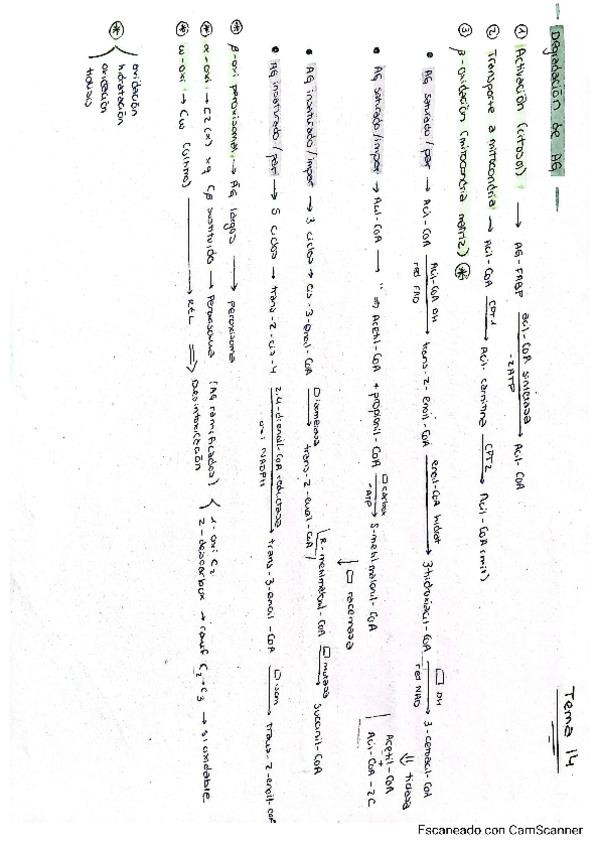 Tema 14
Degradación de AG
① Activación (citosol) → AG-FABP acil-CoA sintetasa -2ATP → Acil-CoA
② Transporte a mitocondria → Acil-CoA CPT1 → Acil-carnitina CPT2 → Acil-CoA (mit)
③ β-oxidación (mitocondria matriz) *
• AG saturado/par → Acil-CoA Acil-CoA DH red FAD → trans-2-enoil-CoA enoil-CoA hidrat → 3-hidroxiacil-CoA DH red NAD → 3-cetoacil-CoA
⇓ tiolasa
Acetil-CoA + Acil-CoA-2C
• AG saturado/impar → Acil-CoA → " ⇒ Acetil-CoA + propionil-CoA carbox -ATP → S-metilmalonil-CoA
↓ racemasa
R-metilmalonil-CoA mutasa → Succinil-CoA
• AG insaturado/impar → 3 ciclos → cis-3-enoil-CoA isomerasa → trans-2-enoil-CoA
• AG insaturado/par → 5 ciclos → trans-2-cis-4 2,4-dienoil-CoA reductasa oxi NADPH → trans-3-enoil-CoA isom → trans-2-enoil-CoA
* β-oxi peroxisomal → AG largos → peroxisoma
* α-oxi → C2 (α) xq Cβ sustituido → Peroxisoma (AG ramificados) 1-oxi C2
2-descarbox → ramif C2→C3 → sí oxidable
* ω-oxi → Cω (último) → REL ⇒ Desintoxicación
* oxidación
hidratación
oxidación
tiolisis
Escaneado con CamScanner